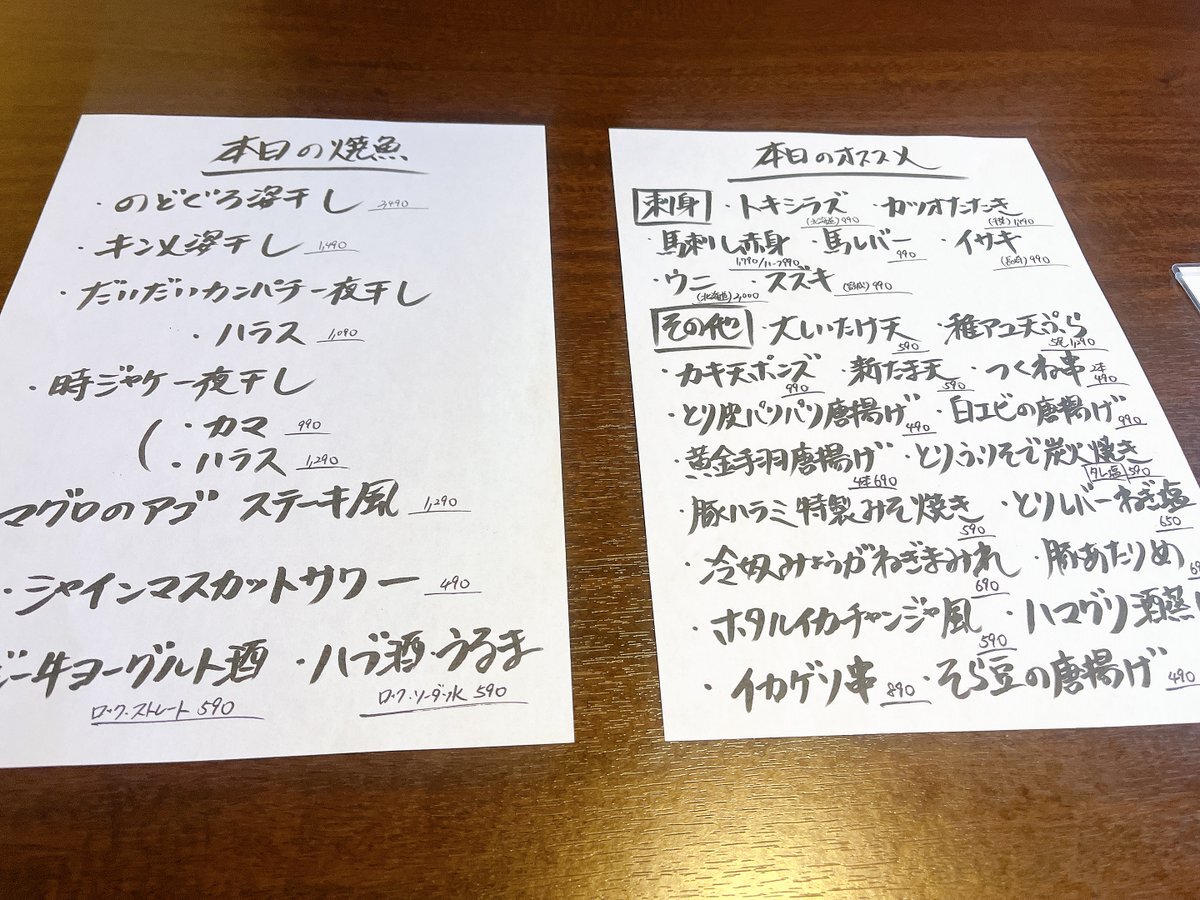 本日の焼魚
・のどぐろ姿干し 2,490
・キンメ姿干し 1,490
・だいだいカンパチ一夜干し
・ハラス 1,090
・時ジャケ一夜干し
・カマ 990
・ハラス 1,290
マグロのアゴ ステーキ風 1,290
・シャインマスカットサワー 490
ジー牛ヨーグルト酒 ・ハブ酒・うるま
ロック・ストレート 590 ロック・ソーダ・水 590
本日のオススメ
刺身 ・トキシラズ ・カツオたたき
(北海道) 990
馬刺し赤身 ・馬レバー ・イサキ
990 (長崎) 990
・ウニ ・スズキ (宮城) 990
(北海道) 2,000
その他 ・大しいたけ天 ・稚アユ天ぷら
590 5尾 1,290
・カキ天ポンズ ・新たま天 ・つくね串 2本 490
990 590
・とり皮パリパリ唐揚げ 490 ・白エビの唐揚げ 990
・黄金手羽唐揚げ ・とりふりそで炭火焼き
4本 690 タレ 塩 590
・豚ハラミ特製みそ焼き ・とりレバーねぎ塩
590 650
・冷奴みょうがねぎまみれ ・豚あたりめ
690
・ホタルイカチャンジャ風 ・ハマグリ酒蒸
590
・イカゲソ串 890 ・そら豆の唐揚げ 490